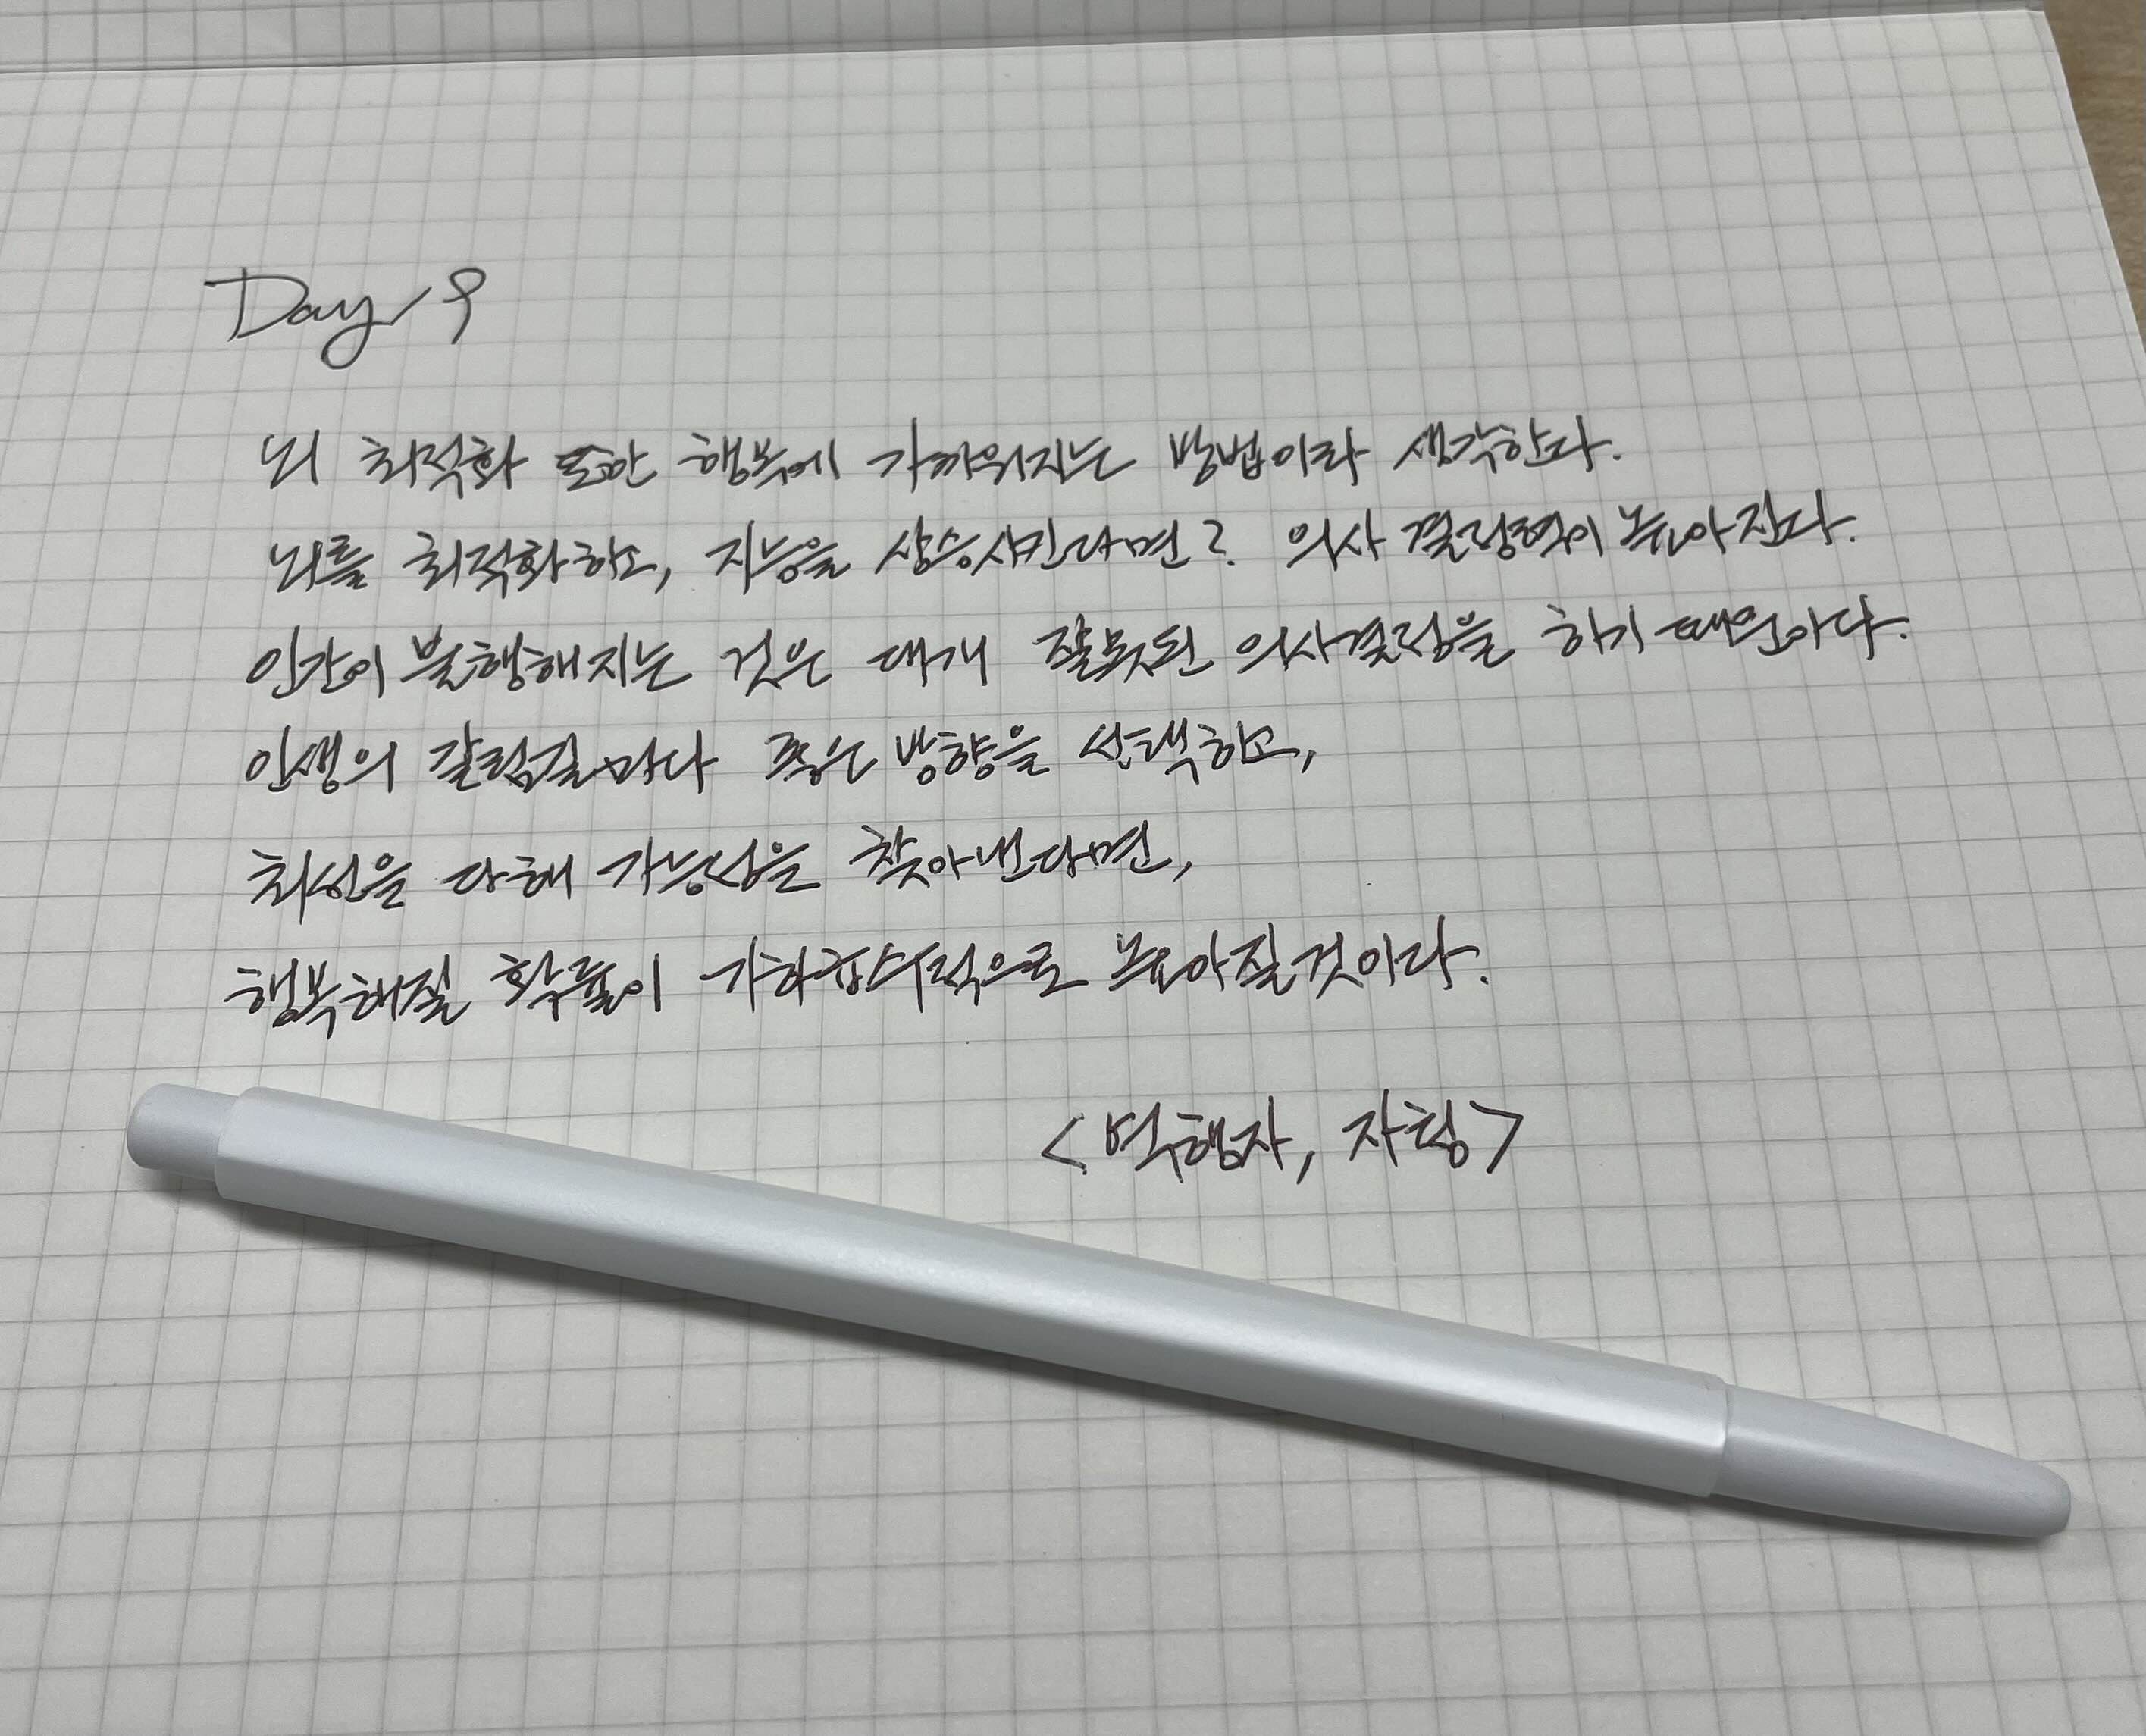 Day 9
뇌 최적화 또한 행복에 가까워지는 방법이라 생각한다.
뇌를 최적화하고, 지능을 상승시킨다면? 의사 결정력이 높아진다.
인간이 불행해지는 것은 대개 잘못된 의사결정을 하기 때문이다.
인생의 갈림길마다 좋은 방향을 선택하고,
최선을 다해 가능성을 찾아낸다면,
행복해질 확률이 기하급수적으로 높아질것이다.
<역행자, 자청>